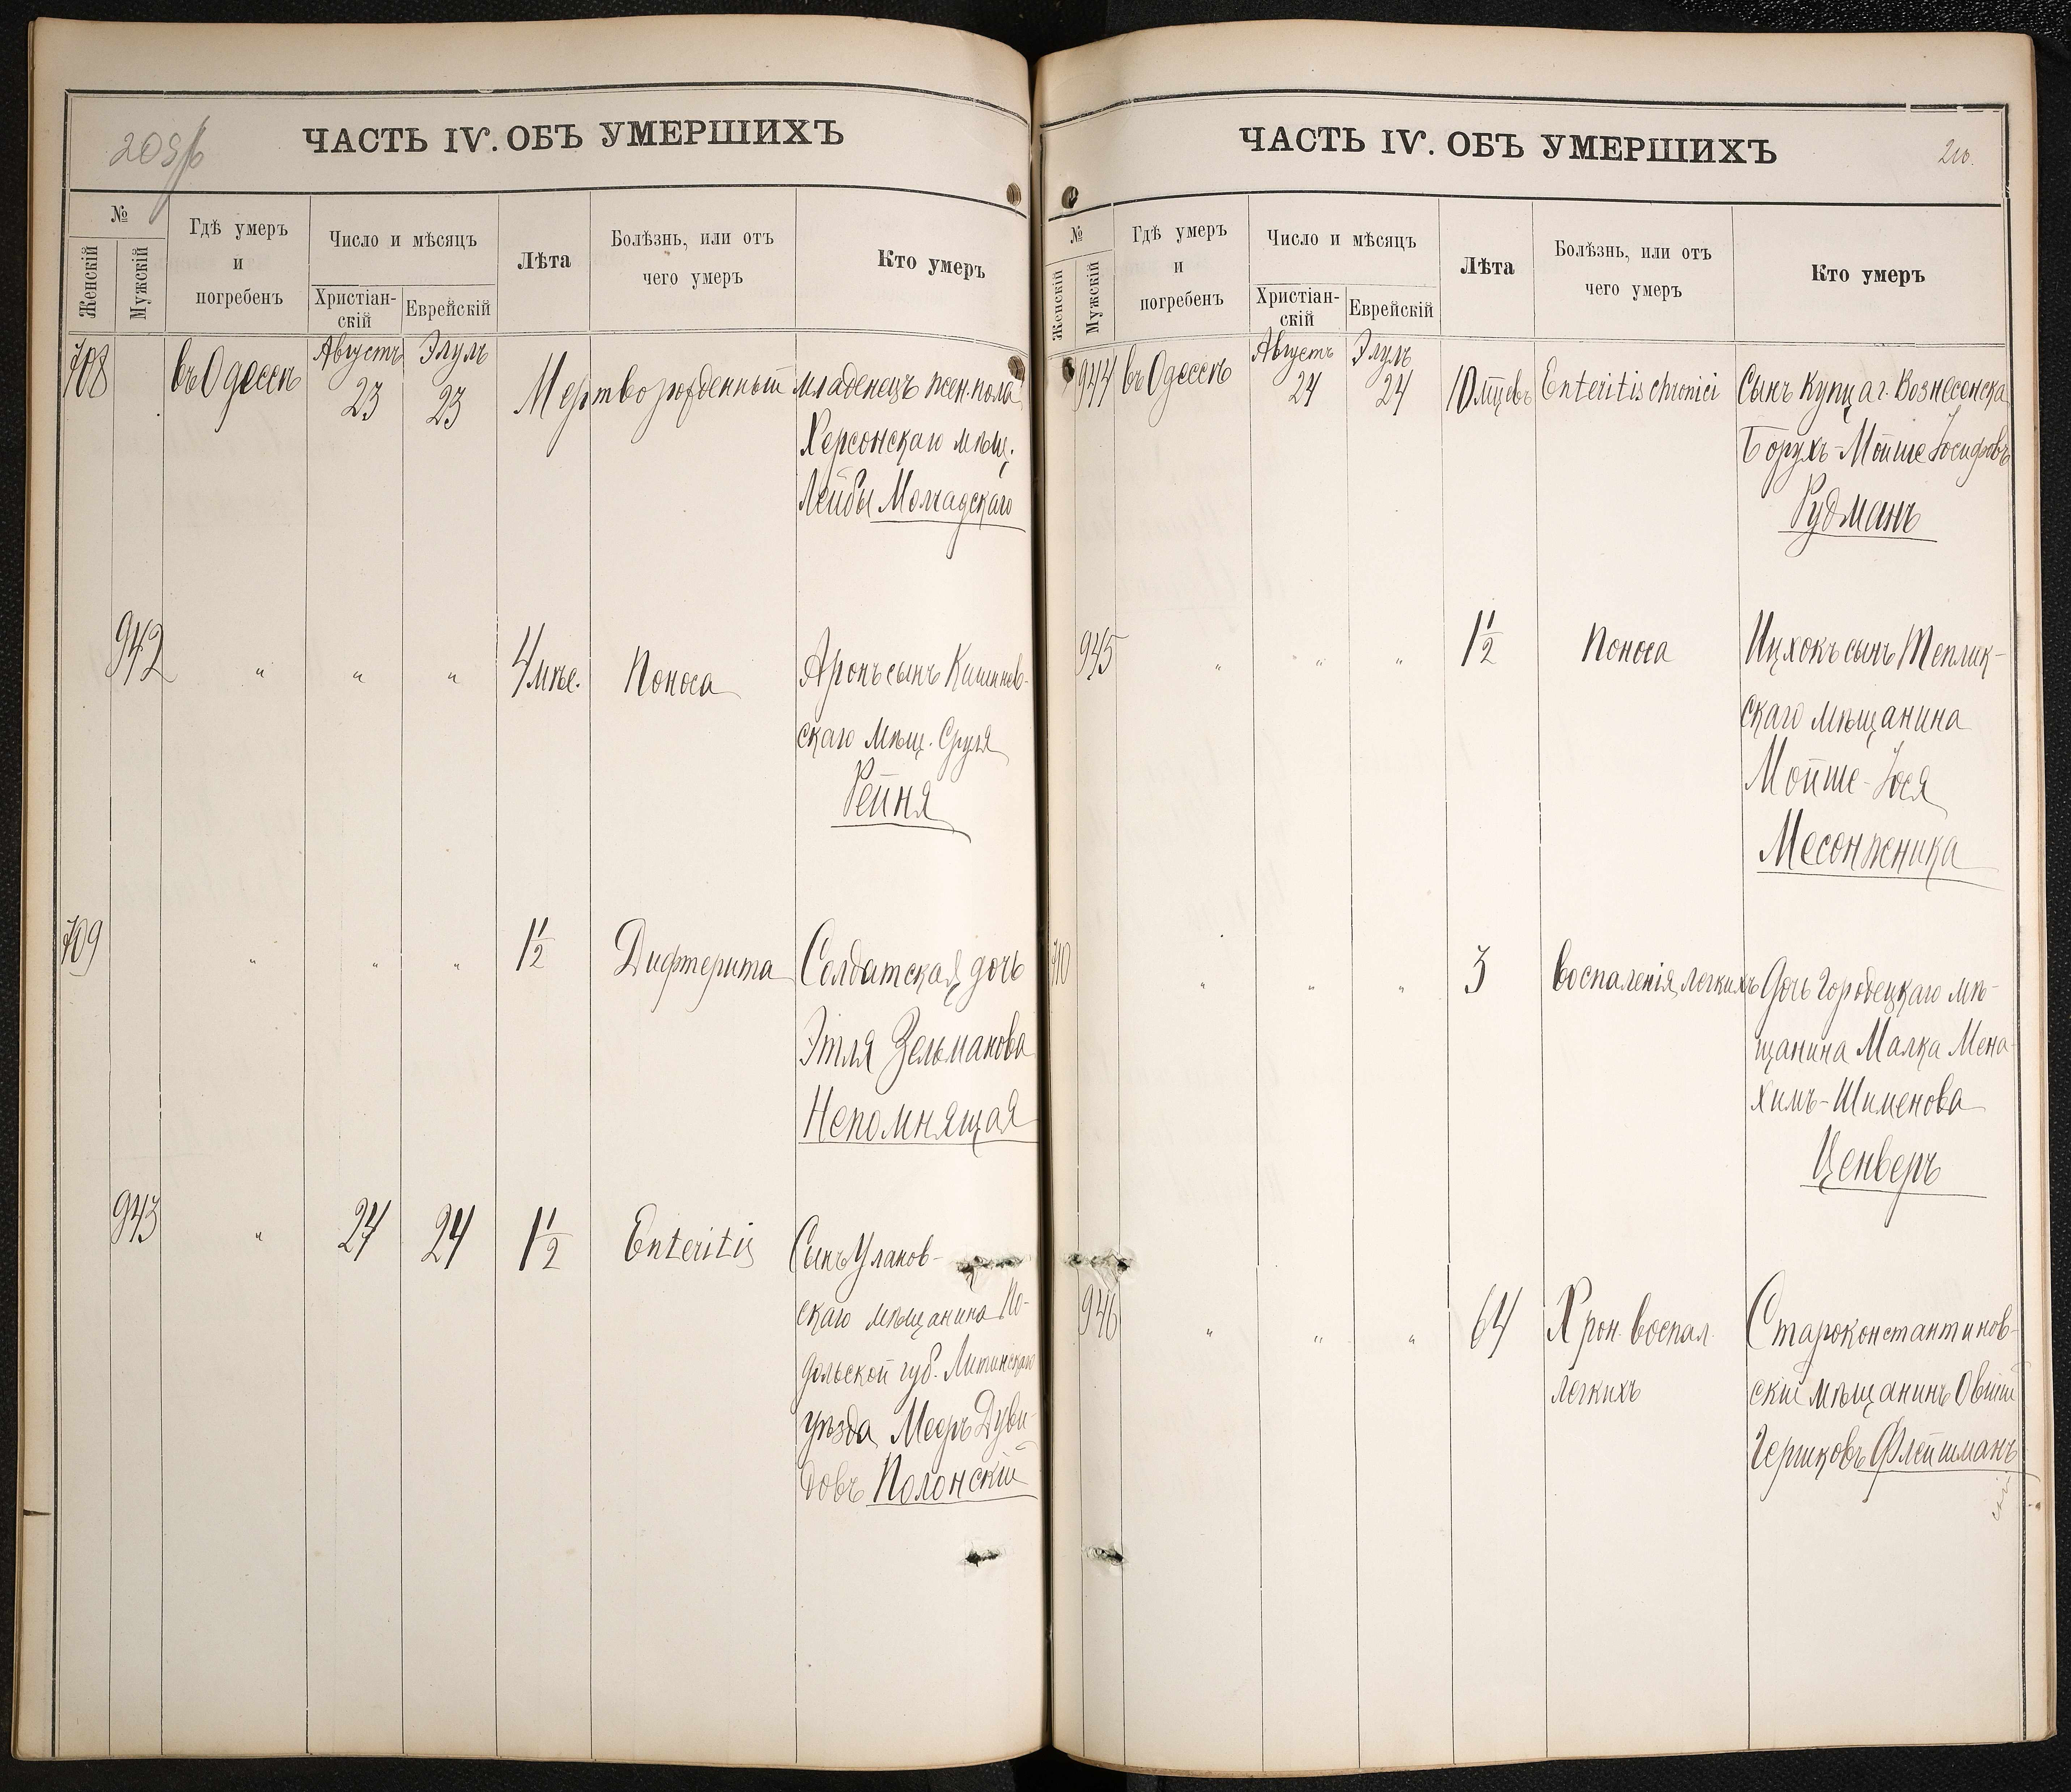 209
ЧАСТЬ IV. ОБЪ УМЕРШИХЪ
№
Женскій
Мужскій
Гдѣ умеръ
и
погребенъ
Число и мѣсяцъ
Христіан-
скій
Еврейскій
Лѣта
Болѣзнь, или отъ
чего умеръ
Кто умеръ
708 въ Одессѣ Августъ 23 Элулъ 23 Мертворожденный младенецъ жен. пола
Херсонскаго мѣщ.
Лейбы Молчадскаго
942 " " " 4 мѣс. Поноса Аронъ сынъ Кишинев-
скаго мѣщ. Сруля
Рейня
709 " " " 1 1/2 Дифтерита Солдатская дочь
Этля Зельманова
Непомнящая
943 " 24 24 1 1/2 Enteritis Сынъ Уланов-
скаго мѣщанина По-
дольской губ. Литинскаго
уѣзда Мееръ Дуви-
довъ Полонскій
ЧАСТЬ IV. ОБЪ УМЕРШИХЪ
210.
№
Женскій
Мужскій
Гдѣ умеръ
и
погребенъ
Число и мѣсяцъ
Христіан-
скій
Еврейскій
Лѣта
Болѣзнь, или отъ
чего умеръ
Кто умеръ
944 въ Одессѣ Августъ 24 Элулъ 24 10 мцевъ Enteritis chronici Сынъ купца г. Вознесенска
Борухъ-Мойше Іосифовъ
Рудманъ
945 " " " 1 1/2 Поноса Ицхокъ сынъ Теплик-
скаго мѣщанина
Мойше-Іося
Месонжника
710 " " " 3 Воспаленія легкихъ Дочь Городецкаго мѣ-
щанина Малка Мена-
химъ-Шименова
Ценверъ
946 " " " 64 Хрон. воспал. Староконстантинов-
легкихъ скій мѣщанинъ Овшій
Гершковъ Флейшманъ